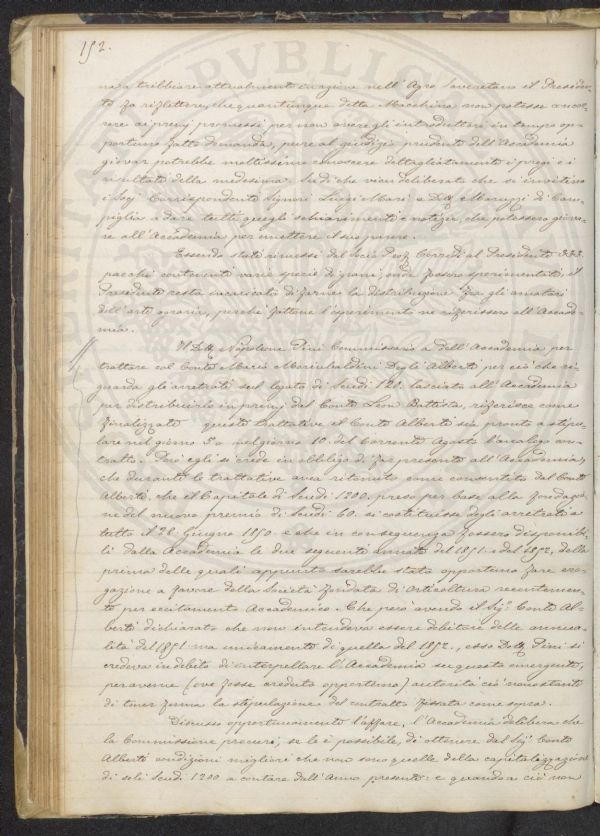 152.
na a tribbiare attualmente in azione nell'Agro loveretano il Presiden-
te fa riflettere, che quantunque detta Macchina non potesse concor-
rere ai premj promessi per non avere gli introduttori in tempo op-
portuno fatto domanda, pure al giudizio prudente dell'Accademia
giovar potrebbe moltissimo conoscere dettagliatamente i pregi e i
risultati della medesima. Indi che vien deliberato che si invitino
i Socj Corrispondenti Signori Luigi Mari e Dott. Maruzzi di Cam-
piglia a dare tutti quegli schiarimenti e notizie che potessero giova-
re all'Accademia per emettere il suo parere.
Essendo stati rimessi dal Socio Prof. Corridi al Presidente
pacchi contenenti varie specie di grani, onde fossero sperimentate, il
Presidente resta incaricato di farne la distribuzione fra gli amatori
dell'arte agraria, perchè fattone l'esperimento ne riferissero all'Accade-
mia.
Il Dott. Napoleone Pini Commissario dell'Accademia per
trattare col Conte Mario Morimbaldini Degli Alberti per ciò che ri-
guarda gli arretrati sul legato di Scudi 120. lasciato all'Accademia
per distribuirlo in premj dal Conte Leon Battista, riferisce come
finalizzate queste trattative il Conte Alberti sia pronto a stipu-
lare nel giorno 5. o nel giorno 10 del corrente Agosto l'analogo con-
tratto. Però egli si crede in obbligo di far presente all'Accademia,
che durante le trattative avea ritenuto come convertito dal Conte
Alberti, che il Capitale di Scudi 1200. preso per base alla fondazio-
ne del nuovo premio di Scudi 60. si costituisse degli arretrati a
tutto il 28. Giugno 1850. e che in conseguenza fossero disponibi-
li dalla Accademia le due seguenti annate del 1851. e del 1852, della
prima delle quali appunto sarebbe stato opportuno fare ero-
gazione a favore della Società fondata di Orticoltura recentemen-
te per eccitamento Accademico. Che però avendo il Sig. Conte Al-
berti dichiarato che non intendeva essere debitore delle annua-
lità del 1851. ma unicamente di quella del 1852., esso Dott. Pini si
credeva in debito di interpellare l'Accademia su questa emergente,
per averne (ove fosse creduto opportuno) autorità ciò nonostante
di tener ferma la stipulazione del contratto fissata come sopra.
Discusso opportunamente l'affare, l'Accademia delibera che
la Commissione procuri, se le è possibile, di ottenere dal Sig. Conte
Alberti condizioni migliori che non sono quelle della capitalizzazione
di soli Scudi 1200 a contare dall'Anno presente: e quando a ciò non